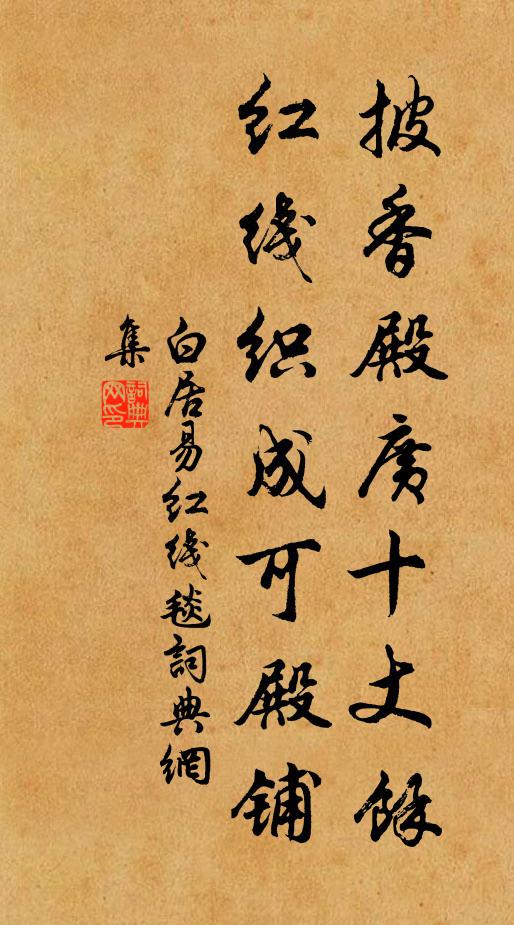 披香殿廣十丈餘
红线织成可殿铺
白居易红线毯詞典網
集
詞典网印